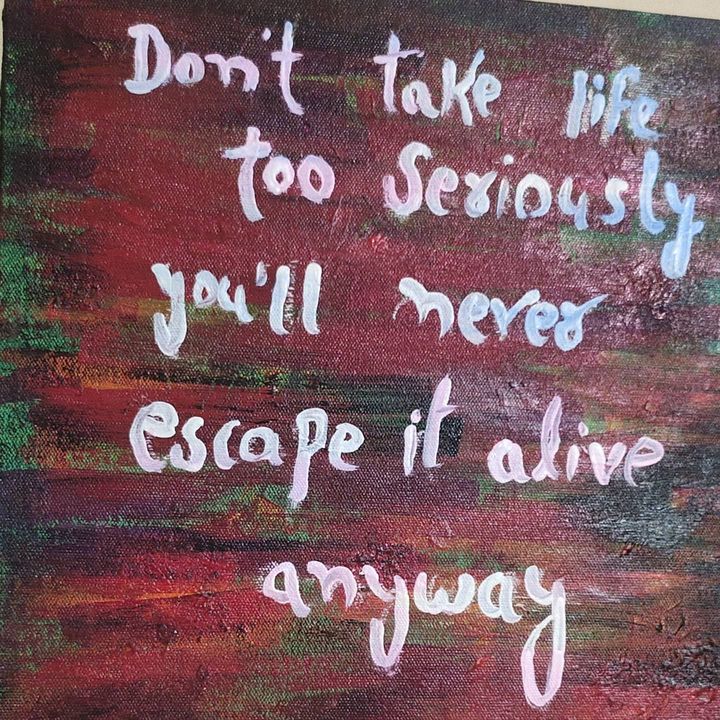 Don't take life
too seriously
you'll never
escape it alive
anyway